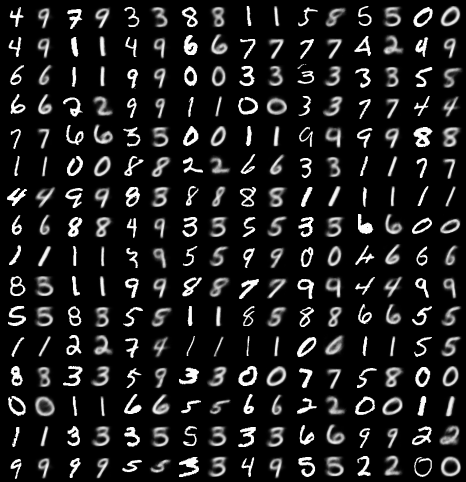 4 9 7 9 3 3 8 8 1 1 5 8 5 5 0 0
4 9 1 1 4 9 6 6 7 7 7 7 4 2 9 9
6 6 1 1 9 9 0 0 3 3 3 3 3 3 5 5
6 6 2 2 9 9 1 1 0 0 3 3 7 7 4 4
7 7 6 6 3 5 0 0 1 1 9 9 9 9 8 8
1 1 0 0 8 8 2 2 6 6 3 3 1 1 7 7
4 4 9 9 8 3 8 8 8 8 1 1 1 1 1 1
6 6 8 8 4 9 3 3 5 5 3 3 6 6 0 0
1 1 1 1 3 9 5 5 9 9 0 0 4 6 6 6
8 3 1 1 9 9 8 8 7 7 9 9 4 4 9 9
5 5 8 3 5 5 1 1 8 5 8 8 6 6 5 5
1 1 2 2 7 4 1 1 1 1 0 6 1 1 5 5
8 8 3 3 5 9 3 3 0 0 7 7 5 8 0 0
0 0 1 1 6 6 5 5 6 6 2 2 0 0 1 1
1 1 3 3 3 5 5 3 3 3 6 6 9 9 2 2
9 9 9 9 5 5 3 3 4 9 5 5 2 2 0 0